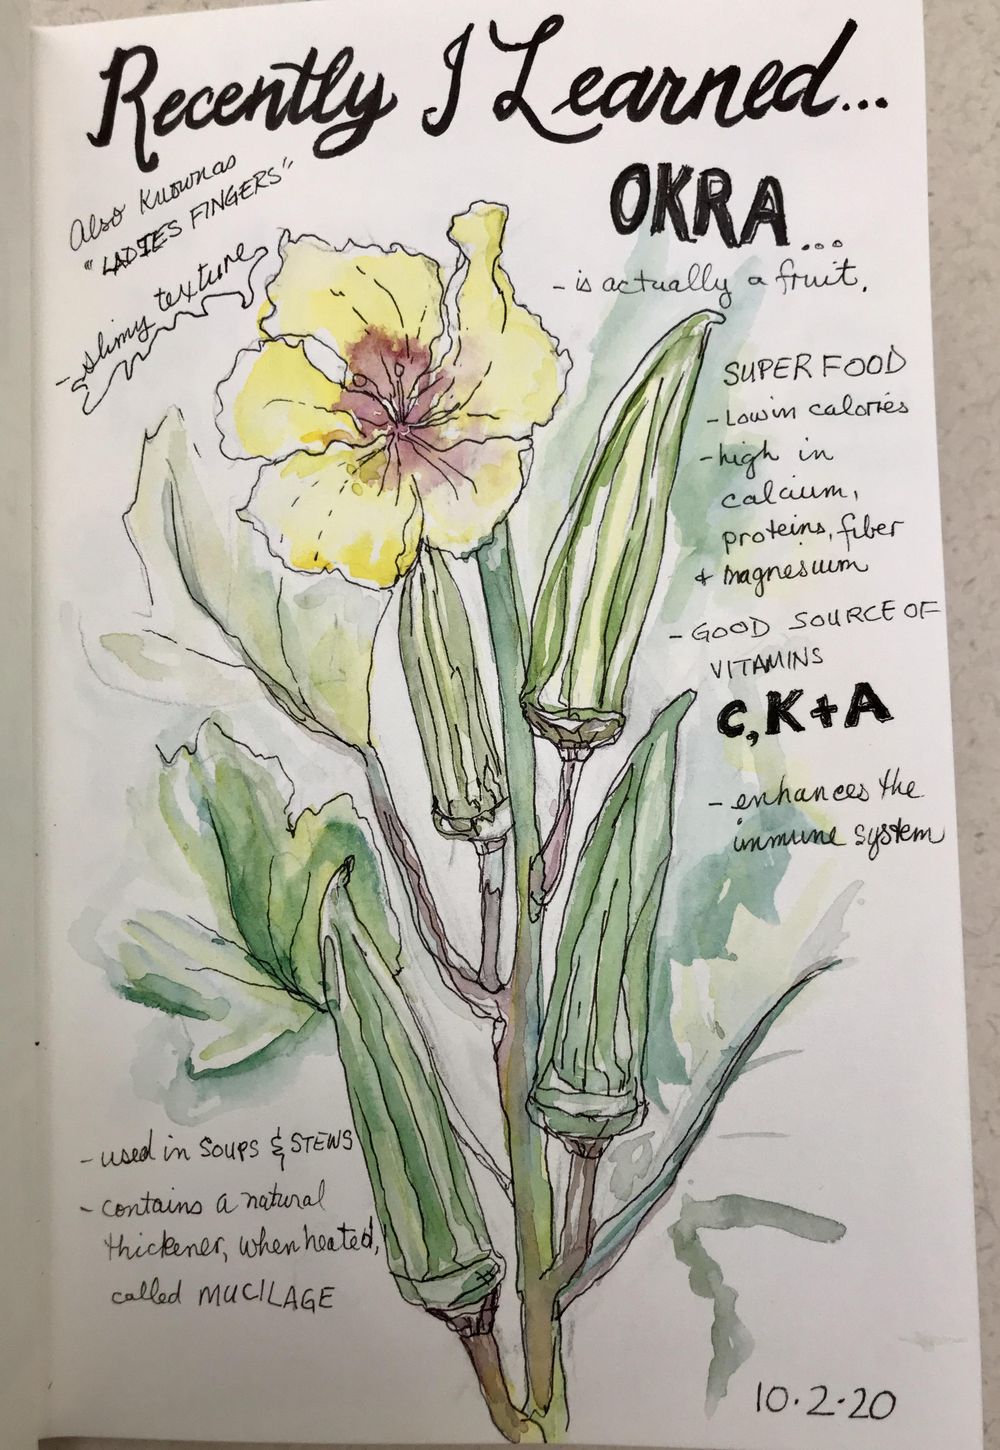 Recently I Learned...
Also Known as
"LADIES FINGERS"
- slimy texture
OKRA...
- is actually a fruit.
SUPER FOOD
- Low in calories
- high in
calcium,
proteins, fiber
+ magnesium
- GOOD SOURCE OF
VITAMINS
C, K + A
- enhances the
immune system
- used in SOUPS & STEWS
- contains a natural
thickener, when heated,
called MUCILAGE
10.2.20